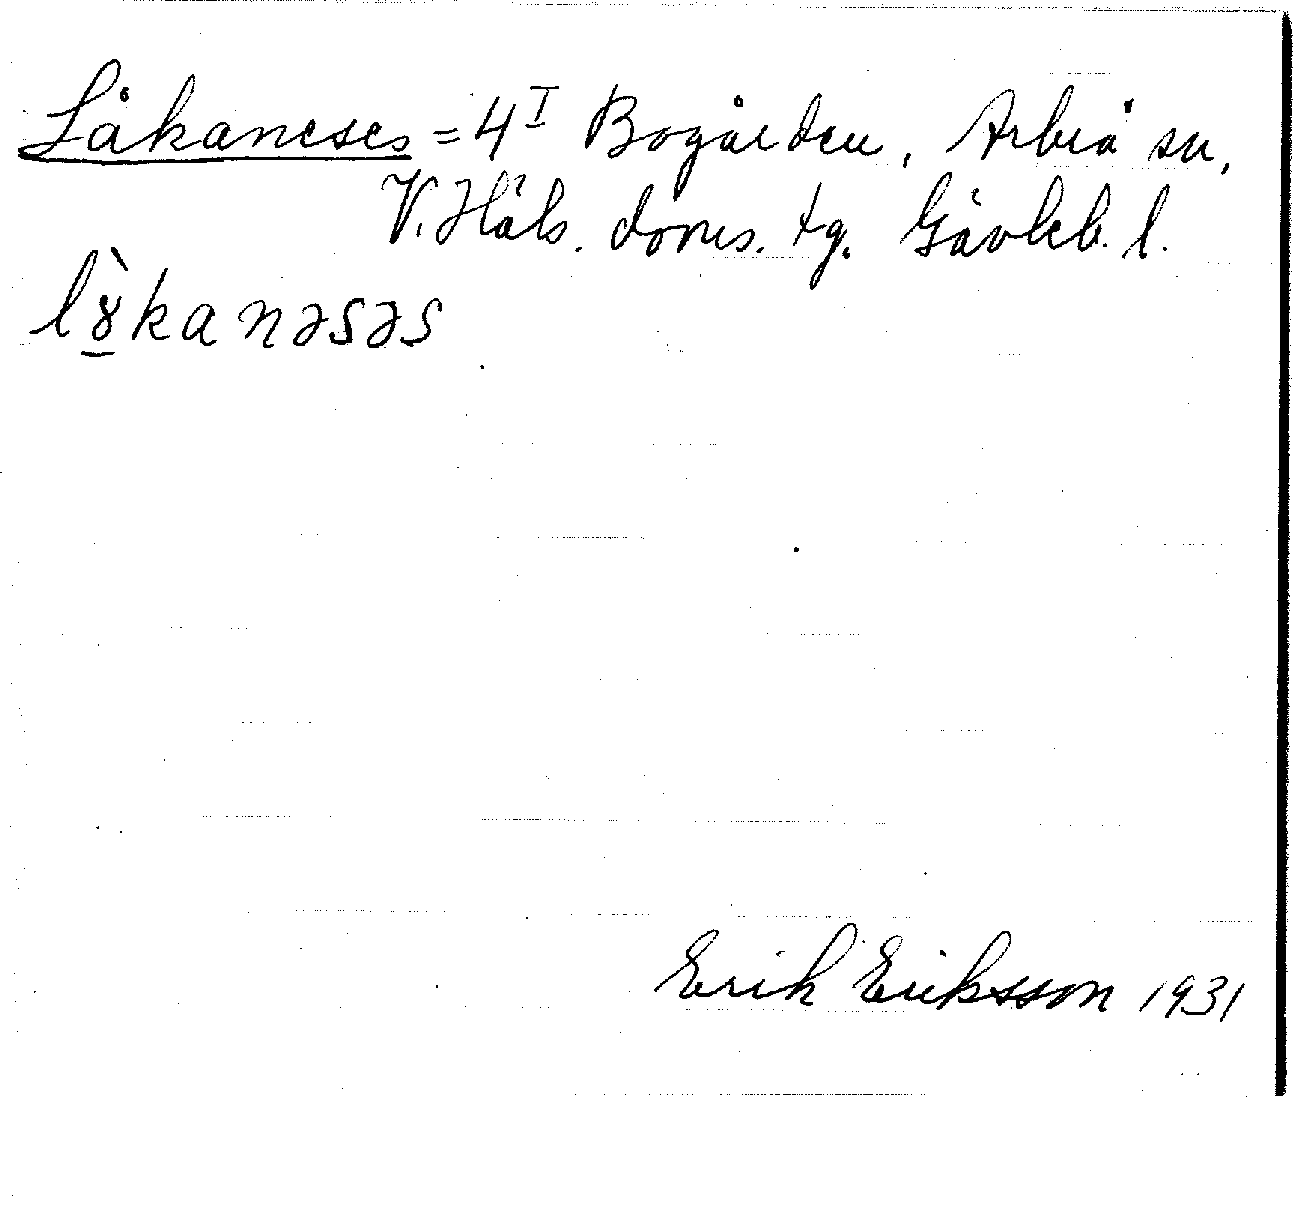 Låkaneses = 4^I Bogården, Arbrå sn,
V. Häls. doms. tg. Gävleb. l.
lò̱kanəsəs
Erik Eriksson 1931